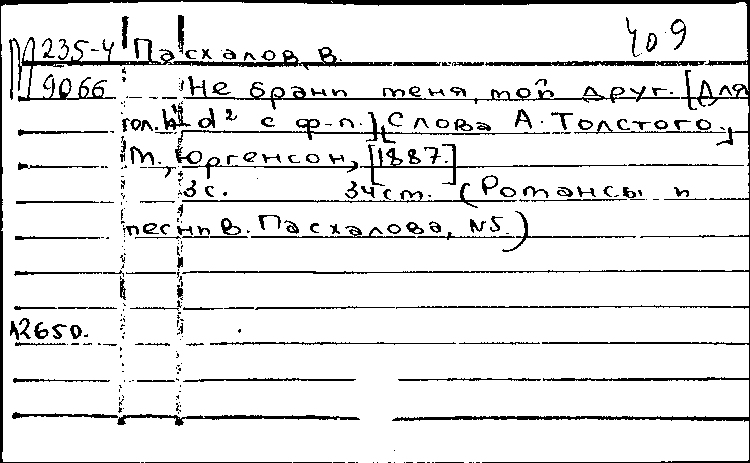 409
М 235-4 Пасхалов, В.
9066 Не брани меня, мой друг. [Для
гол. h¹-d² с ф-п.] [Слова А. Толстого.]
М., Юргенсон, [1887.]
3 с. 34 см. (Романсы и
песни В. Пасхалова, №5.)
12650.